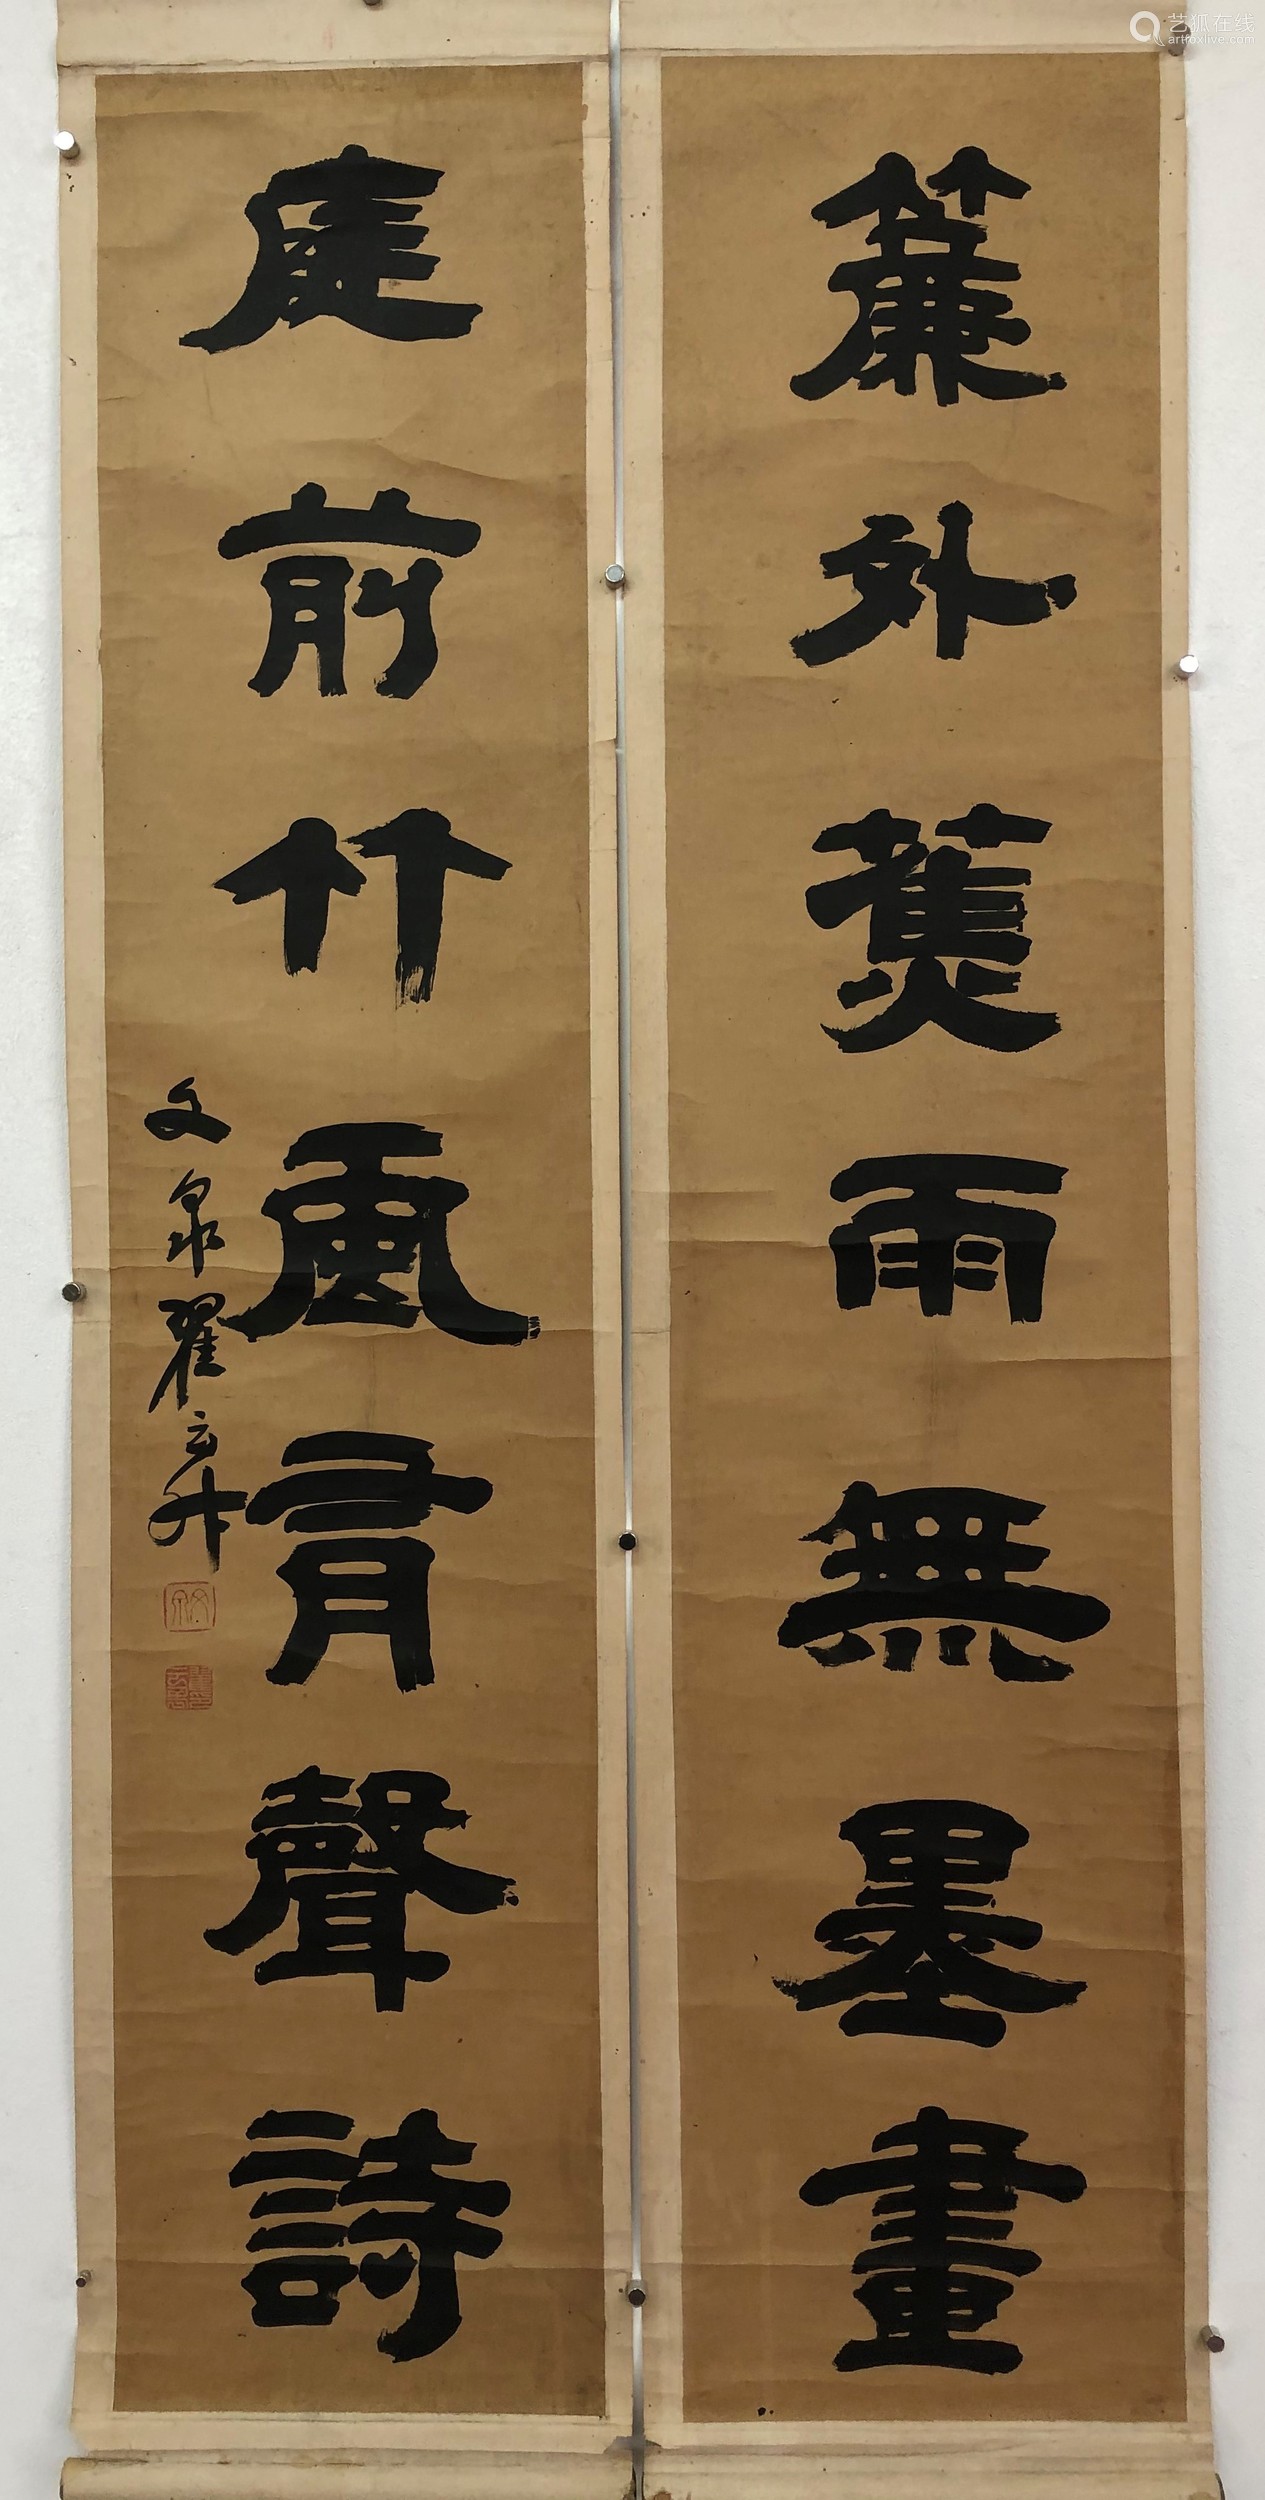 簾外蕉雨無墨畫
庭前竹風有聲詩
文泉翟云升
艺狐在线
artfoxlive.com